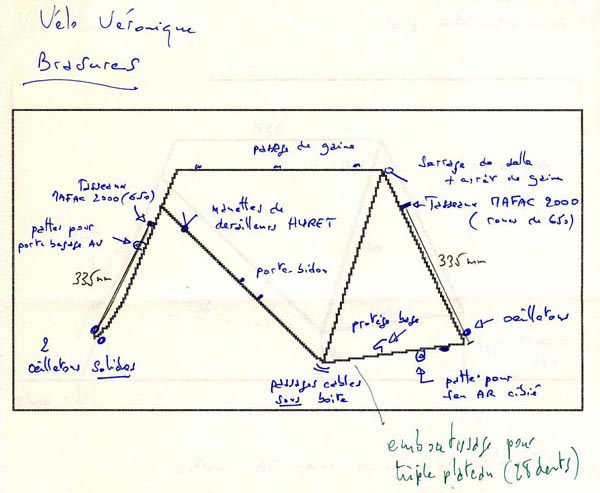 Vélo Véronique
Brasures
passage de gaine
Serrage de selle
+ arrêt de gaine
Tasseaux
MAFAC 2000 (650)
manettes de
derailleurs HURET
Tasseaux MAFAC 2000
(roues de 650)
pattes pour
porte bagage AV
335 mm
porte-bidon
335 mm
protège base
oeilletons
2
oeilletons solides
passages cables
sous boite
pattes pour
frein AR
emboutissage pour
triple plateau (28 dents)